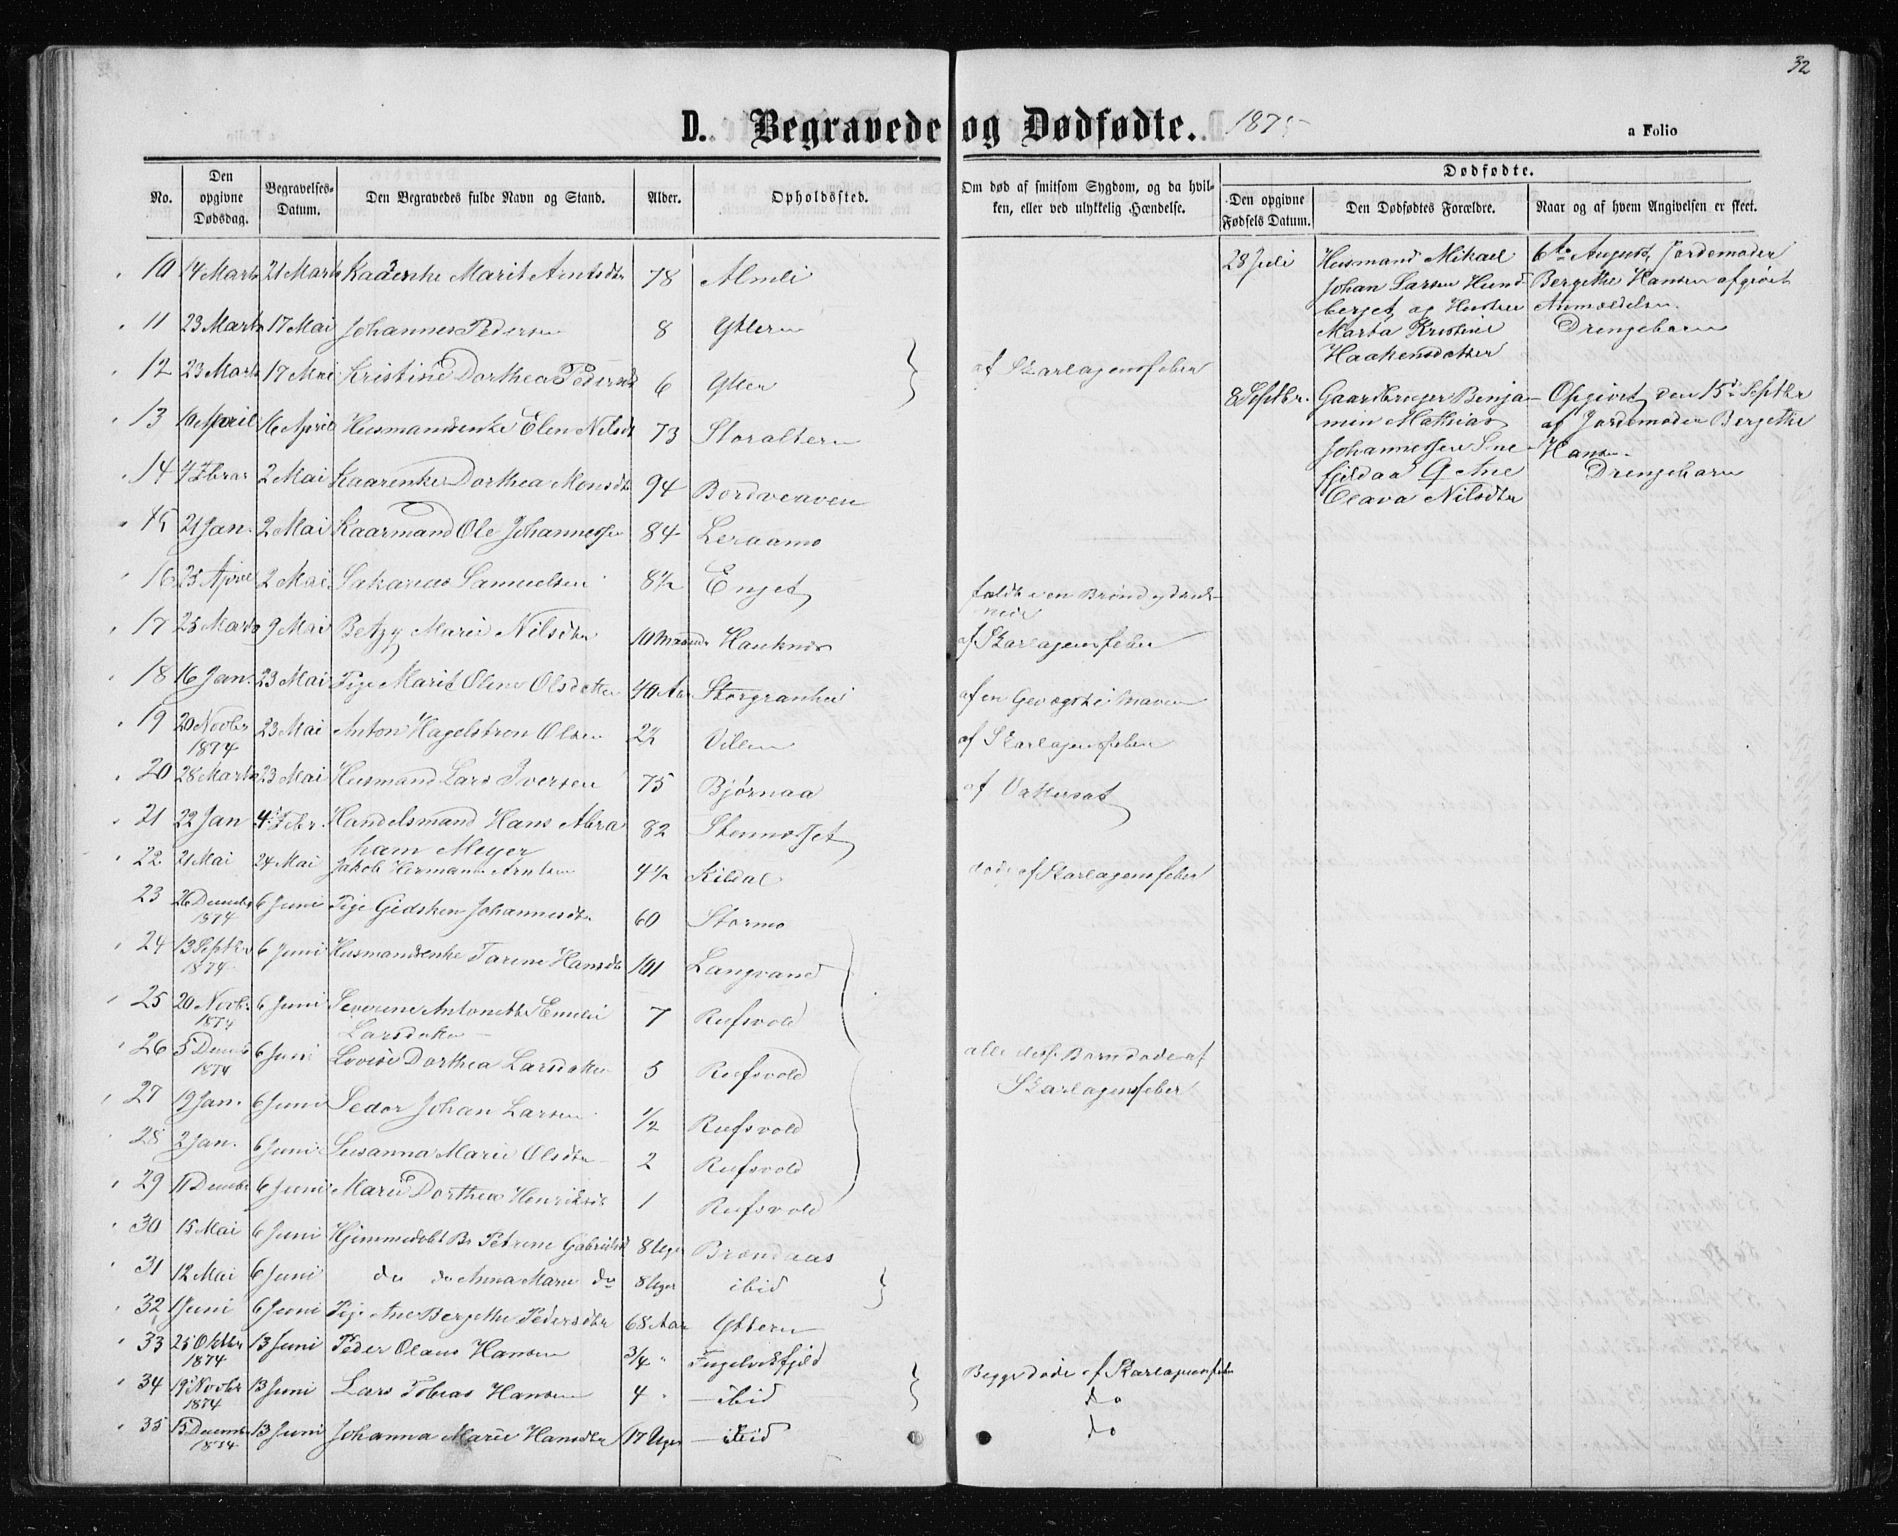 32
D. Begravede og Dødfødte. 1875
a Folio
No.
Den opgivne Dødsdag.
Begravelses-Datum.
Den Begravedes fulde Navn og Stand.
Alder.
Opholdssted.
Om død af smitsom Sygdom, og da hvil-
ken, eller ved ulykkelig Hændelse.
Dødfødte.
Den opgivne Fødsels Datum.
Den Dødfødtes Forældre.
Naar og af hvem Angivelsen er skeet.
10 14 Marts 21 Marts Kaarenke Marit Arntsdtr 78 Almli
11 23 Marts 17 Mai Johannes Pedersen 8 Ytteren
12 23 Marts 17 Mai Kristine Dorthea Pedersd 6 Ytter af Skarlagensfeber
13 10 April 16 April Husmandsenke Elen Nilsdt 73 Storalteren
14 4 Febrar 2 Mai Kaarenke Dorthea Monsdtr 94
15 21 Jan. 2 Mai Kaarmand Ole Johannessen 84 Leraamo
16 25 April 2 Mai Sakarias Samuelsen 8½ Enget faldt i en Brønd og druk-
nede
17 25 Marts 9 Mai Betzy Marie Nilsdtr 10 Maaneder Hauknes af Skarlagensfeber
18 16 Jan. 23 Mai Pige Marit Oline Olsdatter 40 Aar Storgranhei af en Gevægst i Maven
19 20 Novbr 1874 23 Mai Anton Hagelstrøm Olsen 22 Villen af Skarlagensfeber
20 28 Marts 23 Mai Husmand Lars Iversen 75 Bjørnaa af Vattersot
21 22 Jan 4 Febr. Handelsmand Hans Abra
ham Meyer 82 Stennesset
22 21 Mai 24 Mai Jakob Hermann Arntsen 4½ Kildal døde af Skarlagensfeber
23 26 Decembr 1874 6 Juni Pige Gidsken Johannesdtr 60 Stormo
24 13 Septbr 1874 6 Juni Husmandsenke Tarine Hansdtr 101 Langvand
25 20 Novbr. 1874 6 Juni Severine Antonette Emilie
Larsdatter 7 Rufsvold
26 5 Decmb 1874 6 Juni Lovise Dorthea Larsdatter 5 Rufsvold alle diss. Børn døde af
Skarlagensfeber
27 19 Jan. 6 Juni Peder Johan Larsen 1/2 Rufsvold
28 2 Jan. 6 Juni Susanna Marie Olsdtr 2 Rufsvold
29 11 Decembr 6 Juni Marie Dorthea Henriksdt 1 Rufsvold
30 15 Mai 6 Juni Hjemmedøbt Br Petrine Gabrielsd 8 Uger Brændaas
31 12 Mai 6 Juni do do Anna Marie do 8 Uger ibid
32 1 Juni 6 Juni Pige Ane Bergethe Pedersdtr 68 Aar Ytteren
33 25 Oktbr 1874 13 Juni Peder Olaus Hansen 3/4 " Fugelvikfjeld
34 19 Novbr 1874 13 Juni Lars Tobias Hansen 4 " — ibid Begge døde af Skarlagensfeber
do
35 15 Decembr 1874 13 Juni Johanna Marie Hansdtr 17 Uger — ibid do
28 Juli
Husmand Mikael
Johan Larsen Hund
berget og Hustru
Marta Kristine
Haakensdatter
6te August, Jordemoder
Bergethe Hansen afgivet
Anmeldelsen.
Drengebarn
8 Septbr.
Gaardbruger Benja-
min Mathias
Johannessen Sne
fjeldaa & Ane
Olava Nilsdtr
Opgivet den 15de Septbr
af Jordemoder Bergethe
Hansen.
Drengebarn